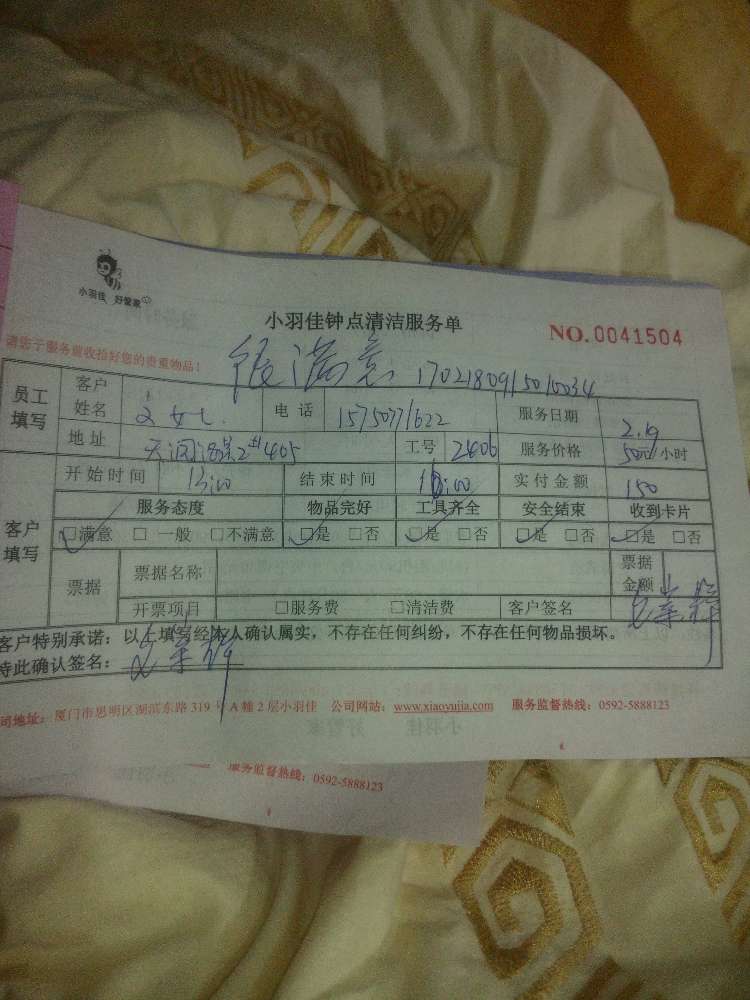 小羽佳 好管家
小羽佳钟点清洁服务单
NO.0041504
请您于服务前收拾好您的贵重物品！
很满意 1702180915010034
员工填写 客户姓名 女士 电话 15750771622 服务日期 2.19
地址 2#405 工号 2406 服务价格 50元/小时
开始时间 13:00 结束时间 16:00 实付金额 150
客户填写 服务态度 物品完好 工具齐全 安全结束 收到卡片
☑满意 □一般 □不满意 ☑是 □否 ☑是 □否 ☑是 □否 ☑是 □否
票据 票据名称 票据金额
开票项目 □服务费 □清洁费 客户签名
客户特别承诺：以上填写经本人确认属实，不存在任何纠纷，不存在任何物品损坏。
特此确认签名：
司地址：厦门市思明区湖滨东路 319 号 A 幢 2 层小羽佳 公司网站：www.xiaoyujia.com 服务监督热线：0592-5888123
服务监督热线：0592-5888123